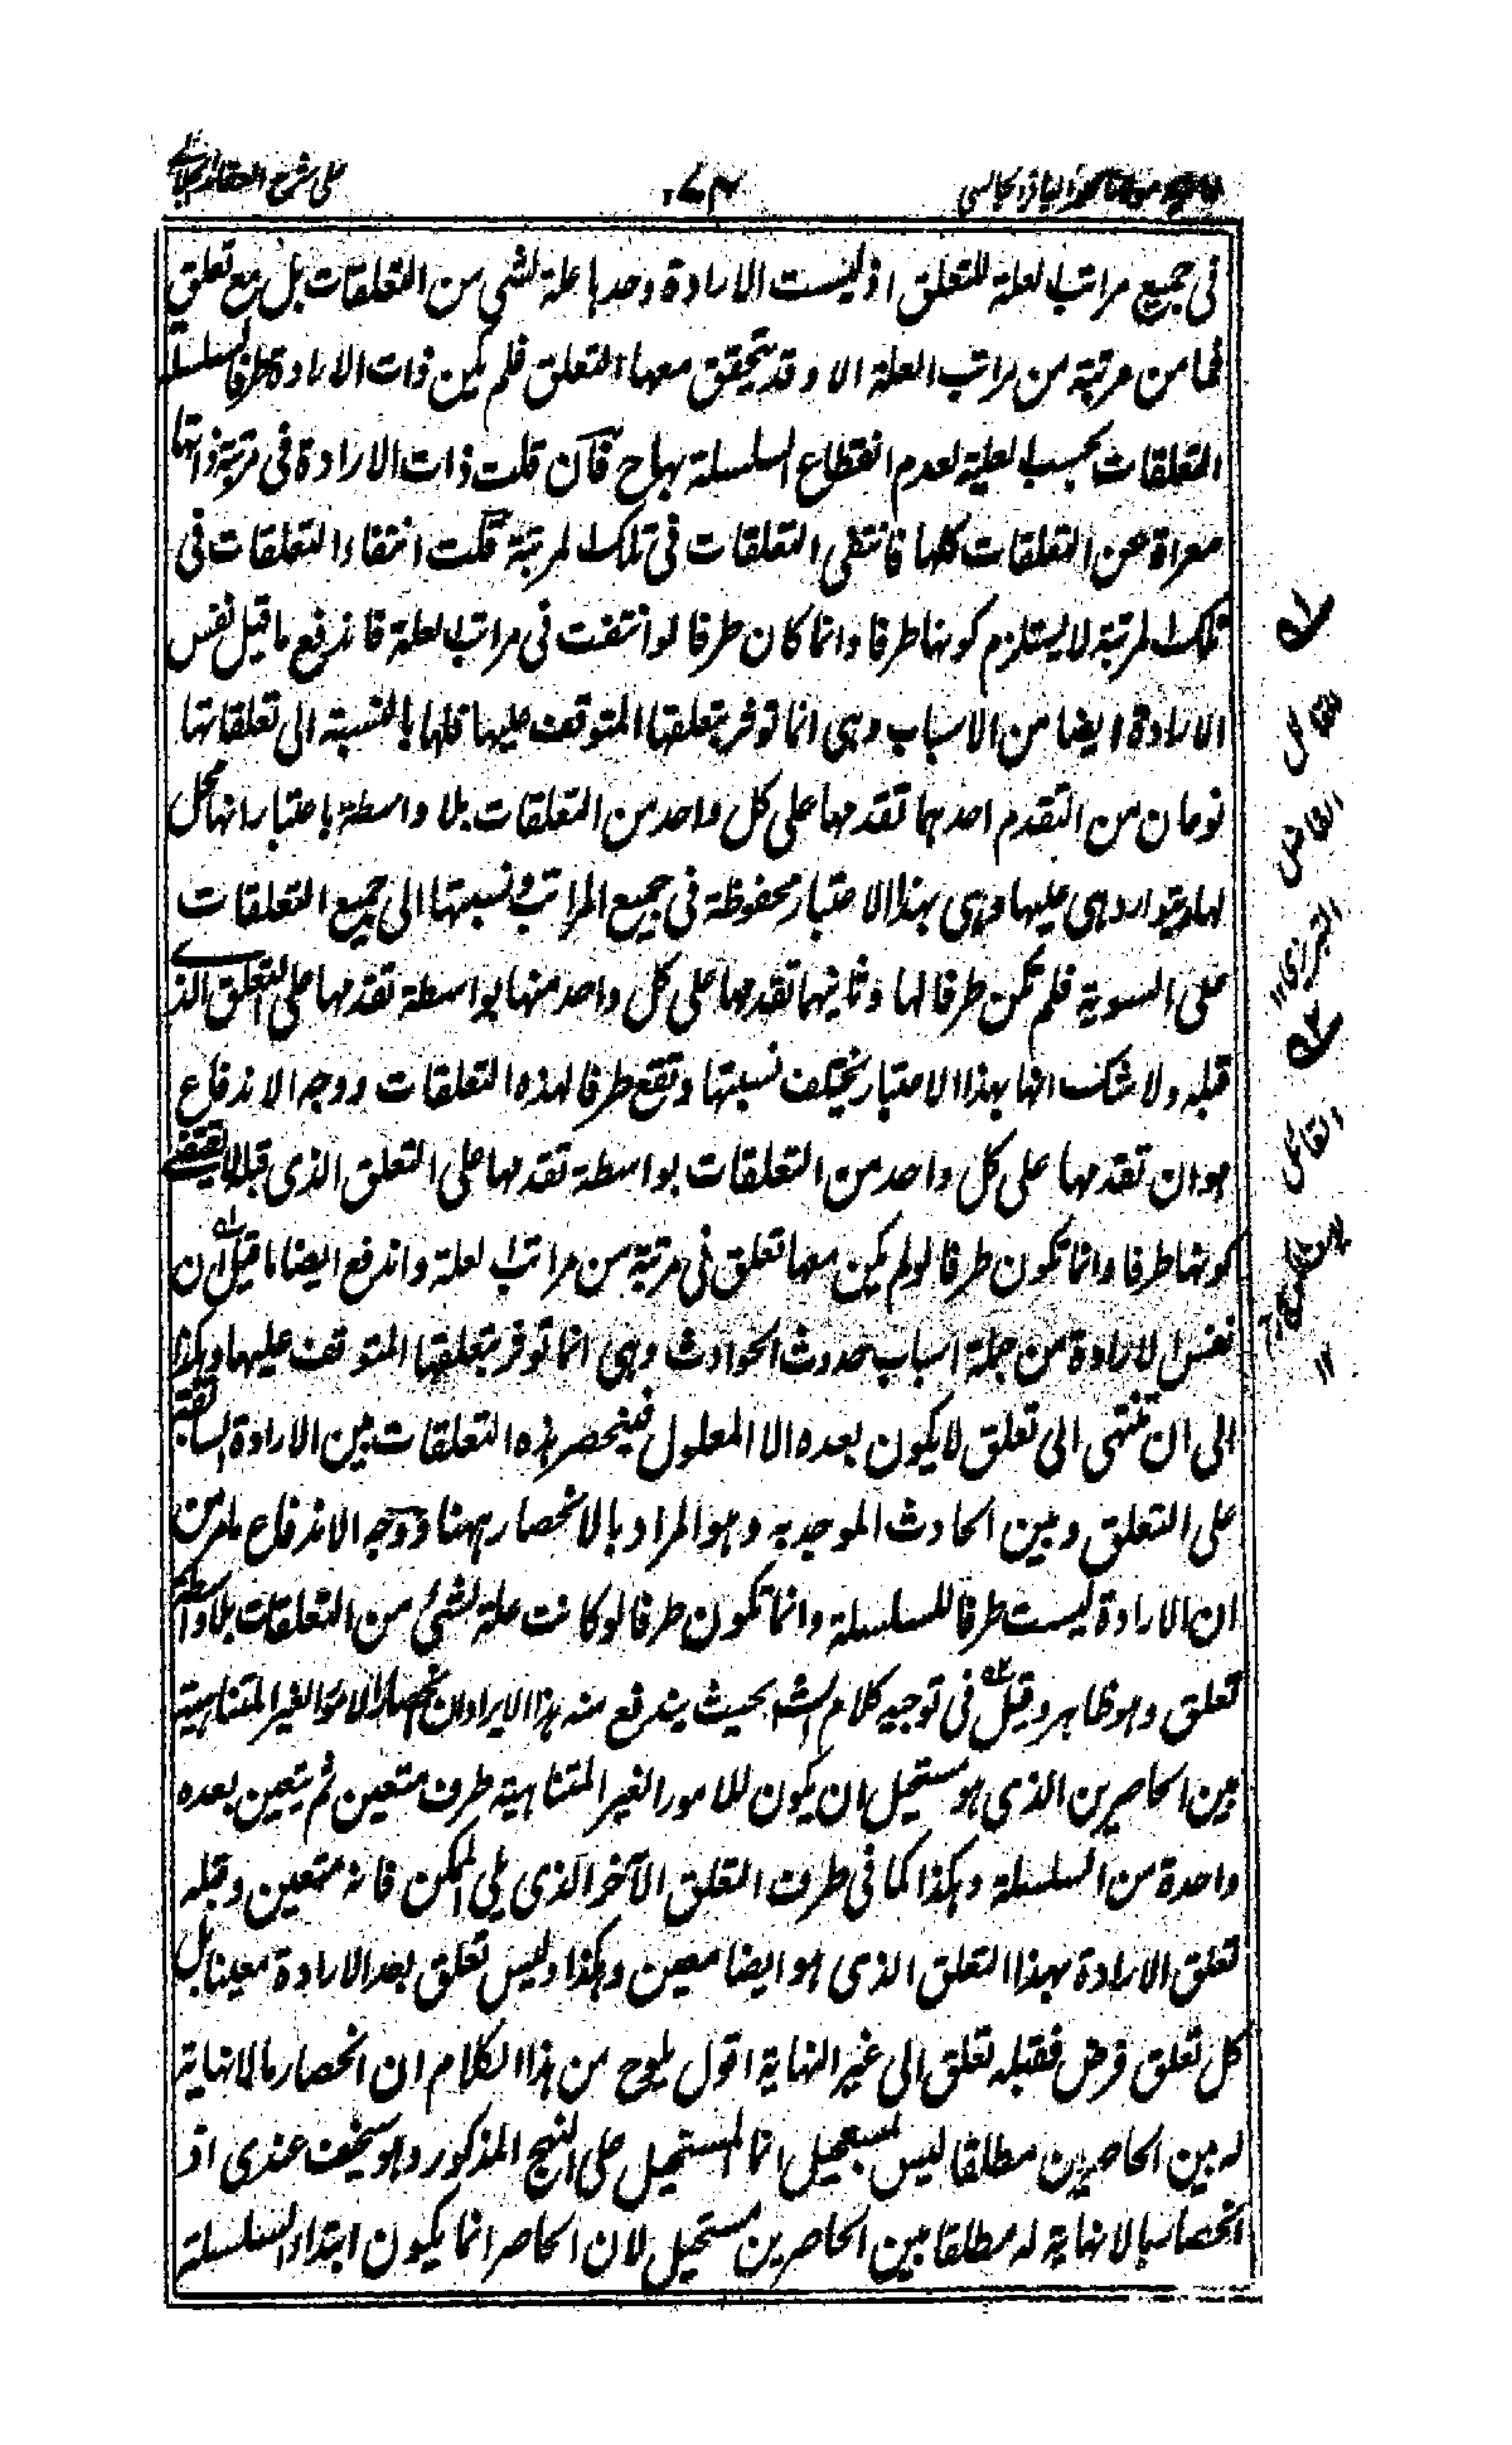 على شرح العقائد
٧٤
في جميع مراتب العلة للتعلق اذ ليست الارادة وحدها علة لشي من التعلقات بل مع تعلق
فما من مرتبة من مراتب العلة الا وقد يتحقق معها التعلق فلم يكن ذات الارادة طرفا لسلسلة
التعلقات بحسب العلية لعدم انقطاع السلسلة بهاح فان قلت ذات الارادة في مرتبة ذاتها
معراة عن التعلقات كلها فانتفى التعلقات في تلك المرتبة قلت انتفاء التعلقات في
تلك المرتبة لا يستلزم كونها طرفا وانما كان طرفا لو انتفت في مراتب العلة فاندفع ما قيل نفس
الارادة ايضا من الاسباب وهي انما توفر بتعلقها المتوقف عليها فلها بالنسبة الى تعلقاتها
نوعان من التقدم احدهما تقدمها على كل واحد من التعلقات بلا واسطة باعتبار انها محل
لها ويتوارد هي عليها وهي بهذا الاعتبار محفوظة في جميع المراتب ونسبتها الى جميع التعلقات
على السوية فلم تكن طرفا لها وثانيهما تقدمها على كل واحد منها بواسطة تقدمها على التعلق الذي
قبله ولا شك انها بهذا الاعتبار يختلف نسبتها وتقع طرفا لهذه التعلقات ووجه الاندفاع
هو ان تقدمها على كل واحد من التعلقات بواسطة تقدمها على التعلق الذي قبله لا يقتضي
كونها طرفا وانما تكون طرفا لو لم يكن معها تعلق في مرتبة من مراتب العلة واندفع ايضا ما قيل ان
نفس الارادة من جملة اسباب حدوث الحوادث وهي انما توفر بتعلقها المتوقف عليها وهكذا
الى ان تنتهى الى تعلق لا يكون بعده الا المعلول فينحصر هذه التعلقات بين الارادة السابقة
على التعلق وبين الحادث الموجد به وهو المراد بالانحصار ههنا ووجه الاندفاع ما مر من
ان الارادة ليست طرفا للسلسلة وانما تكون طرفا لو كانت علة لشئ من التعلقات بلا واسطة
تعلق وهو ظاهر وقيل في توجيه كلام الش بحيث يندفع منه هذا الايراد ان انحصار الامور الغير المتناهية
بين الحاصرين الذي هو مستحيل ان يكون للامور الغير المتناهية طرف متعين ثم يتعين بعده
واحدة من السلسلة وهكذا كما في طرف التعلق الآخر الذي يلي الممكن فانه متعين وقبله
تعلق الارادة بهذا التعلق الذي هو ايضا معين وهكذا وليس تعلق بعد الارادة معينا بل
كل تعلق فرض فقبله تعلق الى غير النهاية اقول يلوح من هذا الكلام ان انحصار ما لا نهاية
له بين الحاصرين مطلقا ليس بمستحيل انما المستحيل على النهج المذكور وهو سخيف عندي اذ
انحصار ما لا نهاية له مطلقا بين الحاصرين مستحيل لان الحاصر انما يكون ابتداء السلسلة
القائل